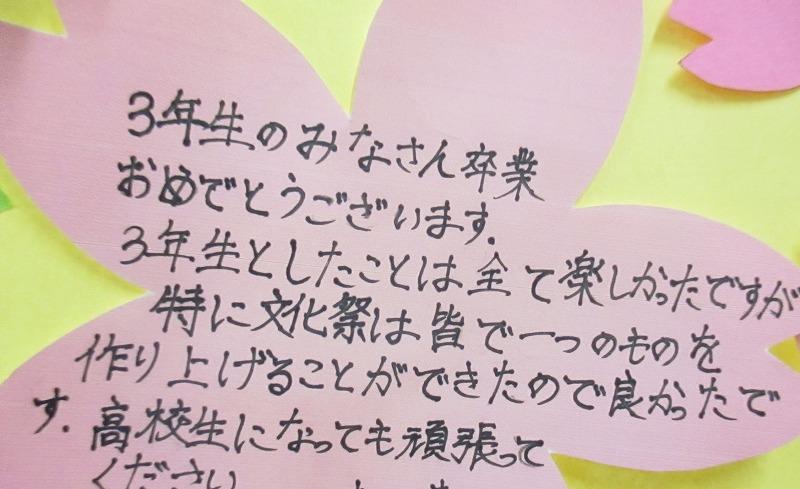 3年生のみなさん卒業
おめでとうございます.
3年生としたことは全て楽しかったですが
特に文化祭は皆で一つのものを
作り上げることができたので良かったで
す.高校生になっても頑張って
ください